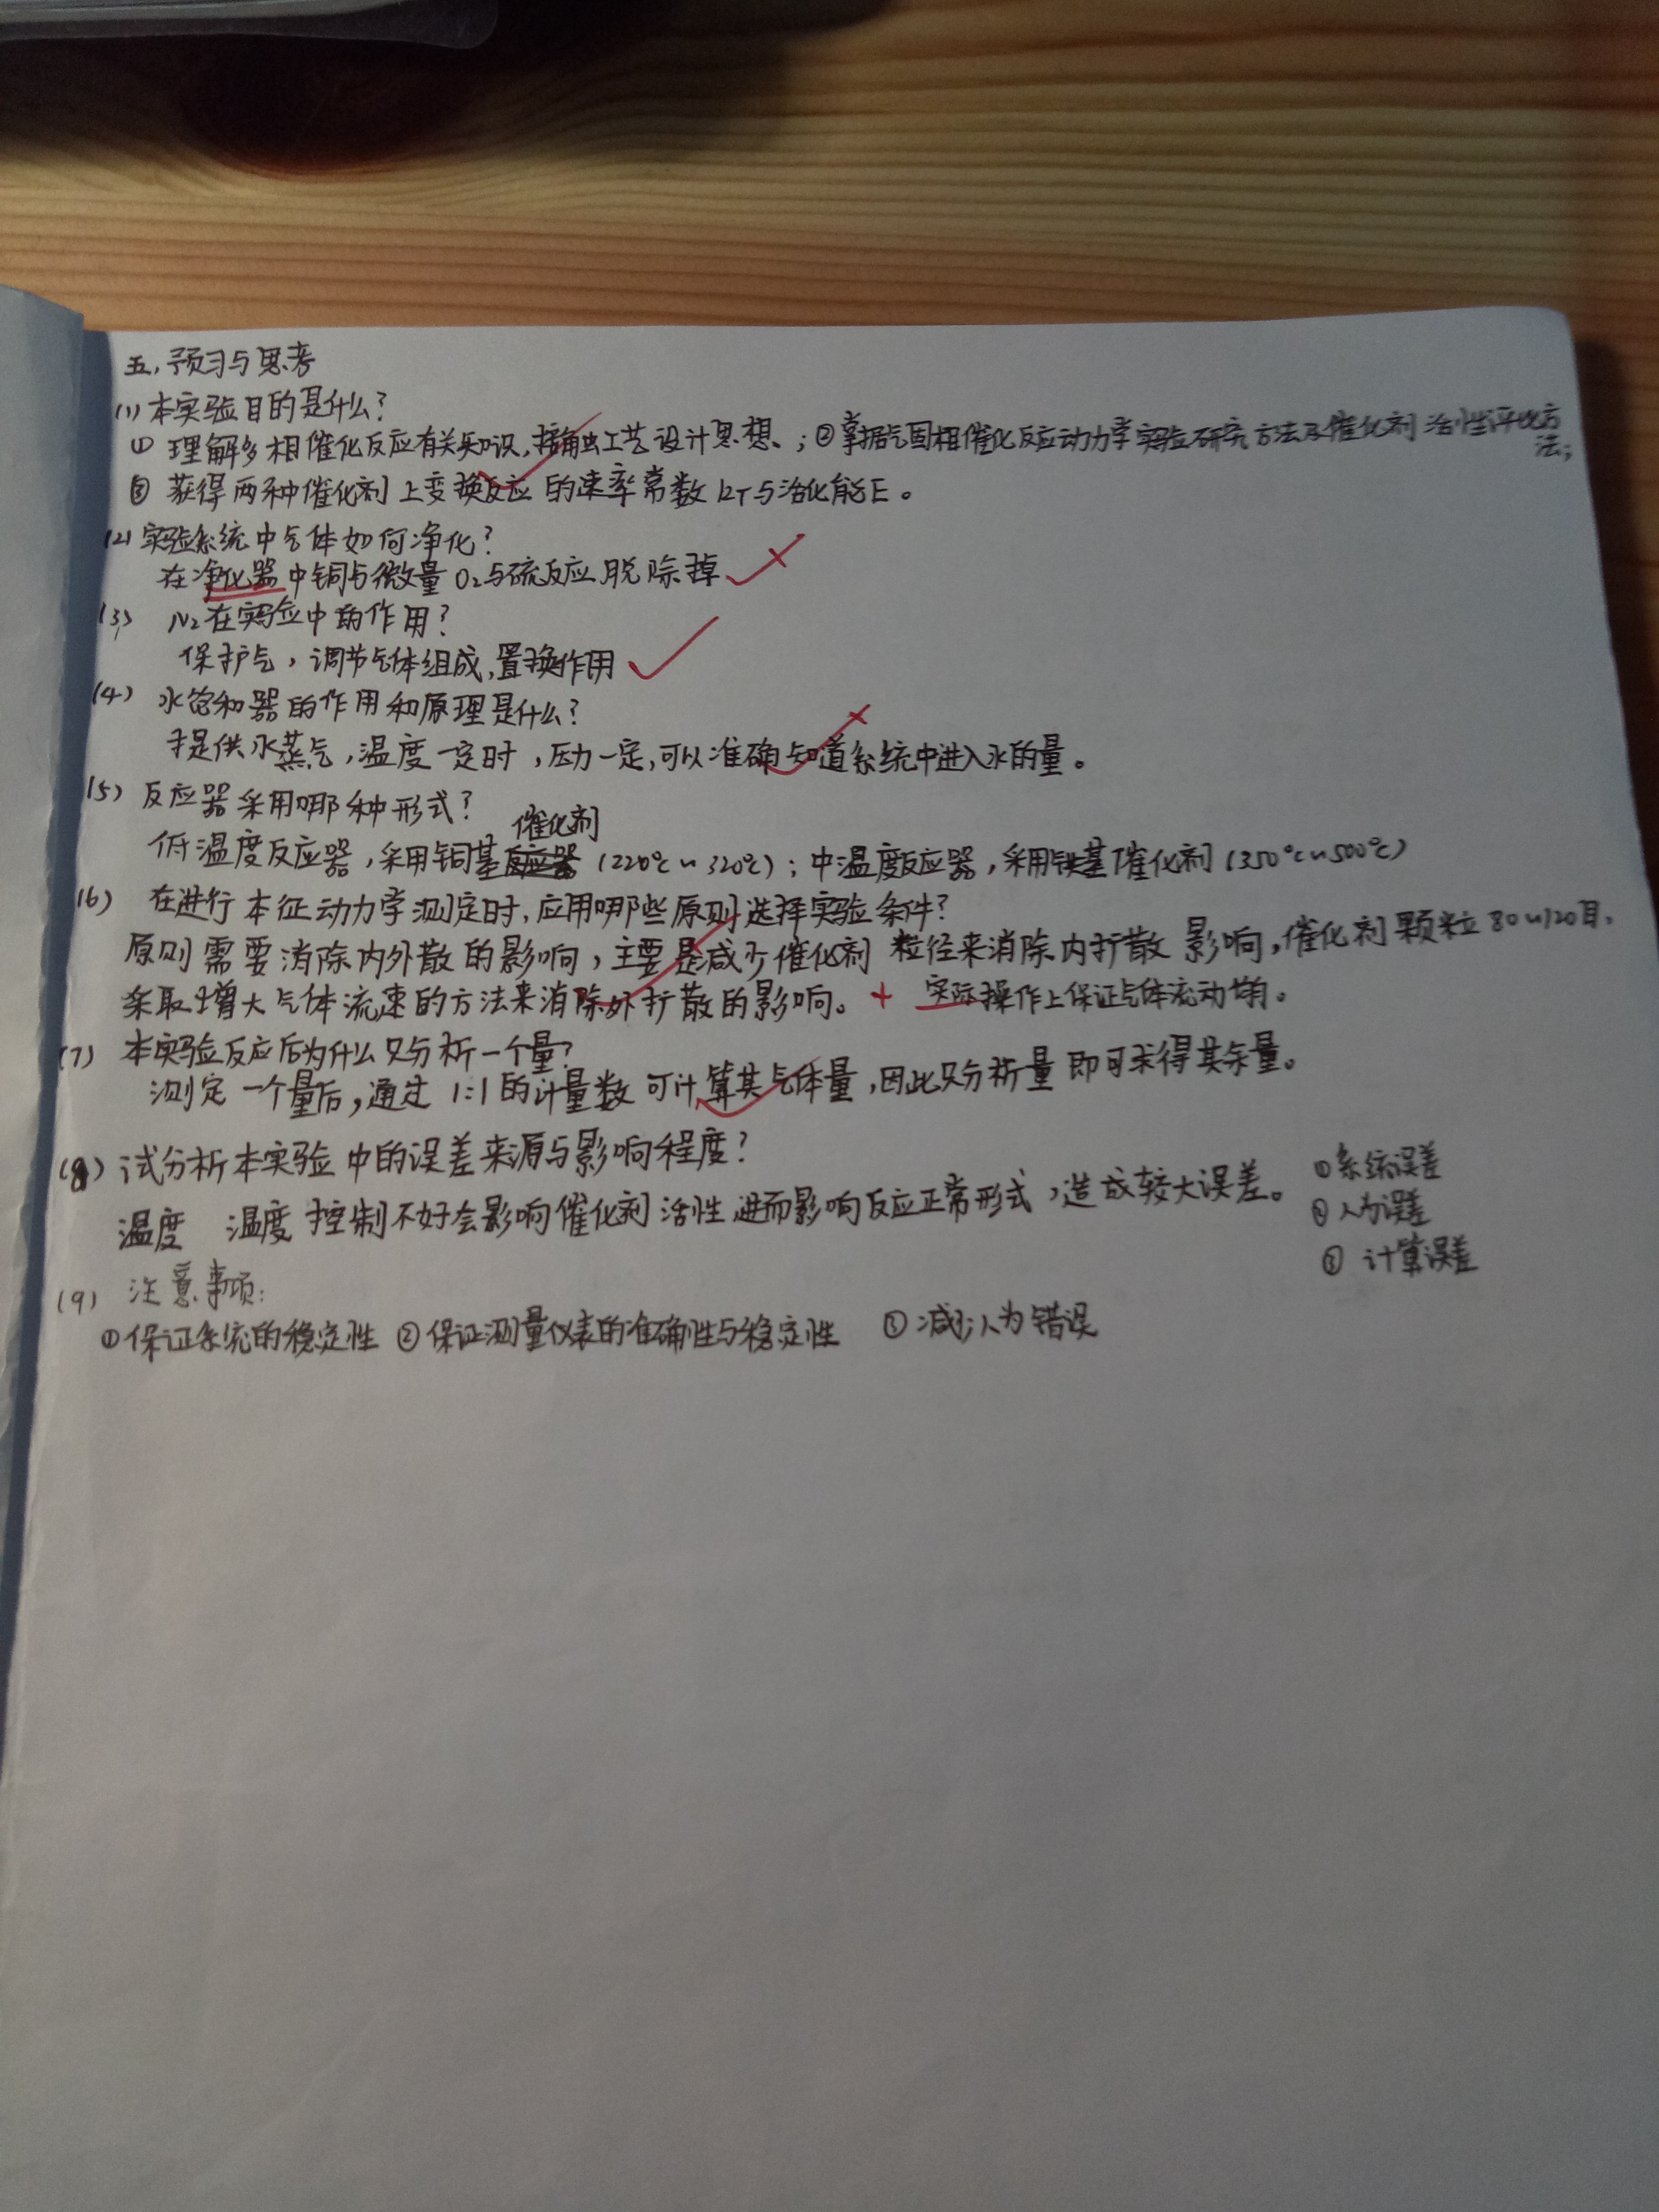 五、预习与思考
(1) 本实验目的是什么?
① 理解多相催化反应有关知识,接触工艺设计思想、;②掌握气固相催化反应动力学实验研究方法及催化剂活性评比方
法;
③ 获得两种催化剂上变换反应的速率常数kT与活化能E。
(2) 实验系统中气体如何净化?
在净化器中铜与微量O2与硫反应脱除掉
(3) N2在实验中的作用?
保护气,调节气体组成,置换作用
(4) 水饱和器的作用和原理是什么?
提供水蒸气,温度一定时,压力一定,可以准确知道系统中进入水的量。
(5) 反应器采用哪种形式?
催化剂
低温度反应器,采用铜基反应器(220℃~320℃);中温度反应器,采用铁基催化剂(350℃~500℃)
(6) 在进行本征动力学测定时,应用哪些原则选择实验条件?
原则需要消除内外散的影响,主要是减少催化剂粒径来消除内扩散影响,催化剂颗粒80~120目,
采取增大气体流速的方法来消除外扩散的影响。+ 实际操作上保证气体流动均匀。
(7) 本实验反应后为什么只分析一个量?
测定一个量后,通过1:1的计量数可计算其气体量,因此只分析量即可求得其余量。
(8) 试分析本实验中的误差来源与影响程度?
温度 温度控制不好会影响催化剂活性进而影响反应正常形式,造成较大误差。
①系统误差
②人为误差
③ 计算误差
(9) 注意事项:
①保证系统的稳定性 ②保证测量仪表的准确性与稳定性 ③减少人为错误